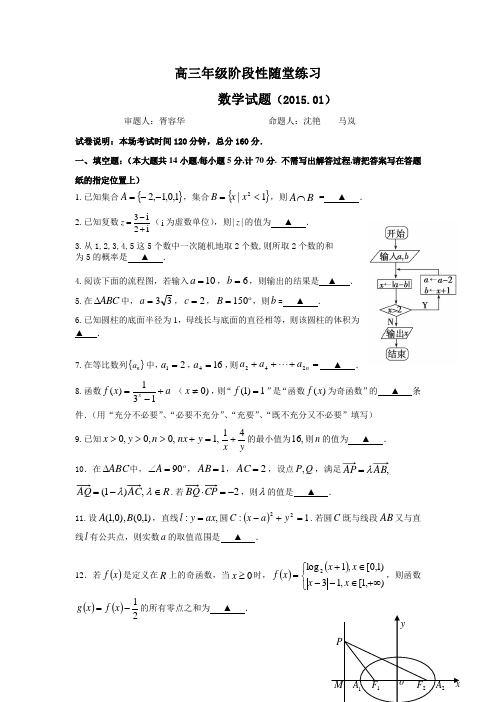 高三年级阶段性随堂练习
数学试题（2015.01）
审题人：胥容华 命题人：沈艳 马岚
试卷说明：本场考试时间120分钟，总分160分．
一、填空题：（本大题共14小题,每小题5分,计70分. 不需写出解答过程,请把答案写在答题
纸的指定位置上）
1.已知集合 A={-2,-1,0,1}，集合 B={x|x²<1}，则 A∩B = ▲ ．
2.已知复数 z=(3-i)/(2+i)（i为虚数单位），则|z|的值为 ▲ ．
3.从1,2,3,4,5这5个数中一次随机地取2个数,则所取2个数的和
为5的概率是 ▲ .
4.阅读下面的流程图，若输入 a=10，b=6，则输出的结果是 ▲ ．
5.在 ΔABC 中，a=3√3，c=2，B=150º，则 b = ▲ ．
6.已知圆柱的底面半径为1，母线长与底面的直径相等，则该圆柱的体积为
▲ ．
7.在等比数列{aₙ}中,a₁=2，a₄=16，则 a₂+a₄+⋯+a₂ₙ= ▲ ．
8.函数 f(x)=1/(3ˣ-1)+a （x≠0），则“f(1)=1”是“函数 f(x) 为奇函数”的 ▲ 条
件．（用“充分不必要”、“必要不充分”、“充要”、“既不充分又不必要”填写）
9.已知 x>0,y>0,n>0,nx+y=1,1/x+4/y 的最小值为16,则 n 的值为 ▲ ．
10．在 ΔABC 中，∠A=90º，AB=1，AC=2，设点 P,Q，满足 AP→=λAB→,
AQ→=(1-λ)AC→,λ∈R．若 BQ→·CP→=-2，则 λ 的值是 ▲ ．
11.设 A(1,0),B(0,1)，直线 l:y=ax,圆 C:(x-a)²+y²=1．若圆 C 既与线段 AB 又与直
线 l 有公共点，则实数 a 的取值范围是 ▲ ．
12．若 f(x) 是定义在 R 上的奇函数，当 x≥0 时，f(x)={log₂(x+1),x∈[0,1) |x-3|-1,x∈[1,+∞)，则函数
g(x)=f(x)-1/2 的所有零点之和为 ▲ ．
开始
输入a,b
x←|a-b|
x>2
Y
a←a-2
b←x+1
N
输出x
结束
y
P
M A₁ F₁ o F₂ A₂ x